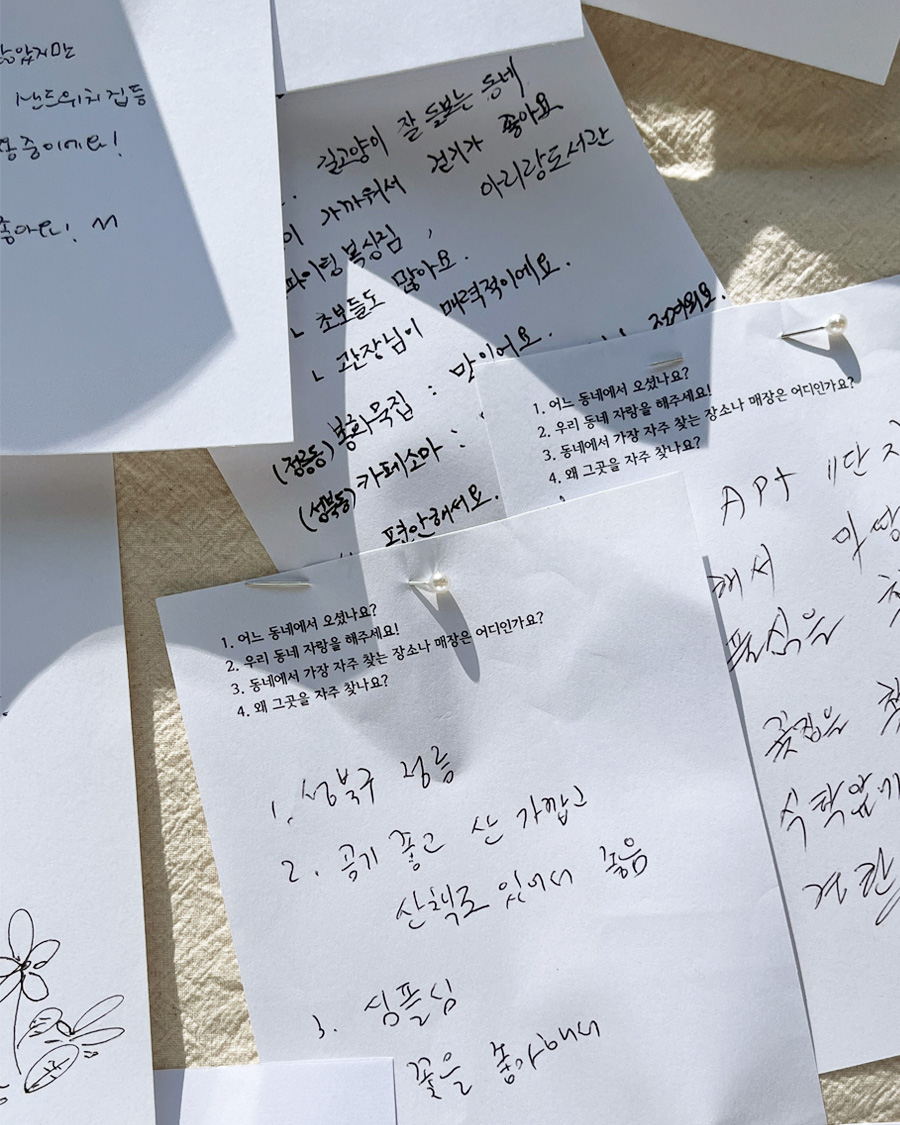 않았지만
샌드위치집등
중이에요!
좋아요!
길고양이 잘 돌보는 동네
이 가까워서 걷기가 좋아요
아리랑도서관
파이팅 복싱짐,
ㄴ 초보들도 많아요.
ㄴ 관장님이 매력적이에요.
(정릉동) 봉화묵집 : 맛이어요.
(성북동) 카페소마 :
편안해서요.
1. 어느 동네에서 오셨나요?
2. 우리 동네 자랑을 해주세요!
3. 동네에서 가장 자주 찾는 장소나 매장은 어디인가요?
4. 왜 그곳을 자주 찾나요?
APt 11단
해서
꽃집은
1. 어느 동네에서 오셨나요?
2. 우리 동네 자랑을 해주세요!
3. 동네에서 가장 자주 찾는 장소나 매장은 어디인가요?
4. 왜 그곳을 자주 찾나요?
1. 성북구 정릉
2. 공기 좋고 산 가깝고
산책로 있어서 좋음
3. 심플심
꽃을 좋아해서